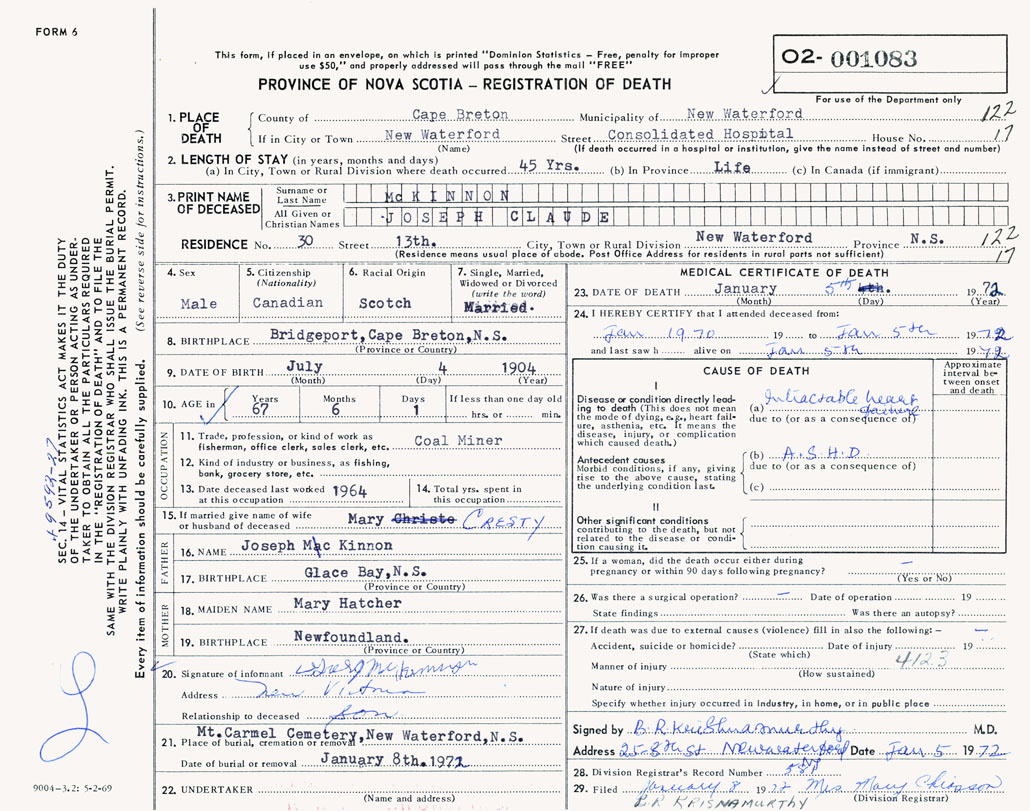 FORM 6
This form, if placed in an envelope, on which is printed "Dominion Statistics – Free, penalty for improper
use $50," and properly addressed will pass through the mail "FREE"
O2- 001083
For use of the Department only
PROVINCE OF NOVA SCOTIA – REGISTRATION OF DEATH
1. PLACE OF DEATH
County of Cape Breton Municipality of New Waterford 122
If in City or Town New Waterford Street Consolidated Hospital House No. 17
(Name) (If death occurred in a hospital or institution, give the name instead of street and number)
2. LENGTH OF STAY (in years, months and days)
(a) In City, Town or Rural Division where death occurred 45 Yrs. (b) In Province Life (c) In Canada (if immigrant)
3. PRINT NAME OF DECEASED
Surname or Last Name McKINNON
All Given or Christian Names JOSEPH CLAUDE
RESIDENCE No. 30 Street 13th. City, Town or Rural Division New Waterford Province N.S. 122
(Residence means usual place of abode. Post Office Address for residents in rural parts not sufficient) 17
4. Sex
Male
5. Citizenship
(Nationality)
Canadian
6. Racial Origin
Scotch
7. Single, Married,
Widowed or Divorced
(write the word)
Married.
8. BIRTHPLACE Bridgeport,Cape Breton,N.S.
(Province or Country)
9. DATE OF BIRTH July 4 1904
(Month) (Day) (Year)
10. AGE in
Years Months Days If less than one day old
67 6 1 hrs. or min.
OCCUPATION
11. Trade, profession, or kind of work as
fisherman, office clerk, sales clerk, etc. Coal Miner
12. Kind of industry or business, as fishing,
bank, grocery store, etc.
13. Date deceased last worked
at this occupation 1964
14. Total yrs. spent in
this occupation
15. If married give name of wife
or husband of deceased Mary Christe CRESTY
FATHER
16. NAME Joseph Mac Kinnon
17. BIRTHPLACE Glace Bay,N.S.
(Province or Country)
MOTHER
18. MAIDEN NAME Mary Hatcher
19. BIRTHPLACE Newfoundland.
(Province or Country)
20. Signature of informant McKinnon
Address New Victoria
Relationship to deceased son
21. Place of burial, cremation or removal Mt.Carmel Cemetery,New Waterford,N.S.
Date of burial or removal January 8th.1972
22. UNDERTAKER
(Name and address)
MEDICAL CERTIFICATE OF DEATH
23. DATE OF DEATH January 5th 4th. 1972
(Month) (Day) (Year)
24. I HEREBY CERTIFY that I attended deceased from:
Jan 1970 19 to Jan 5th 1972
and last saw h alive on Jan 5th 1972
CAUSE OF DEATH
Approximate
interval be-
tween onset
and death
I
Disease or condition directly lead-
ing to death (This does not mean
the mode of dying, e.g., heart fail-
ure, asthenia, etc. It means the
disease, injury, or complication
which caused death.)
(a) Intractable heart failure
due to (or as a consequence of)
Antecedent causes
Morbid conditions, if any, giving
rise to the above cause, stating
the underlying condition last.
(b) A.S.H.D
due to (or as a consequence of)
(c)
II
Other significant conditions
contributing to the death, but not
related to the disease or condi-
tion causing it.
25. If a woman, did the death occur either during
pregnancy or within 90 days following pregnancy? –
(Yes or No)
26. Was there a surgical operation? – Date of operation 19
State findings Was there an autopsy?
27. If death was due to external causes (violence) fill in also the following: –
Accident, suicide or homicide? Date of injury 19
(State which) 4123
Manner of injury
(How sustained)
Nature of injury
Specify whether injury occurred in Industry, in home, or in public place
Signed by B.R Krishnamurthy M.D.
Address 25-8th St Newwaterford Date Jan 5 1972
28. Division Registrar's Record Number
29. Filed January 8 1972 Mrs Mary Chiasson
(Division Registrar)
B.R KRISNAMURTHY
SEC. 14 – VITAL STATISTICS ACT MAKES IT THE DUTY
OF THE UNDERTAKER OR PERSON ACTING AS UNDER-
TAKER TO OBTAIN ALL THE PARTICULARS REQUIRED
IN THE "REGISTRATION OF DEATH" AND TO FILE THE
SAME WITH THE DIVISION REGISTRAR WHO SHALL ISSUE THE BURIAL PERMIT.
WRITE PLAINLY WITH UNFADING INK. THIS IS A PERMANENT RECORD.
Every item of information should be carefully supplied. (See reverse side for instructions.)
9004-3.2: 5-2-69